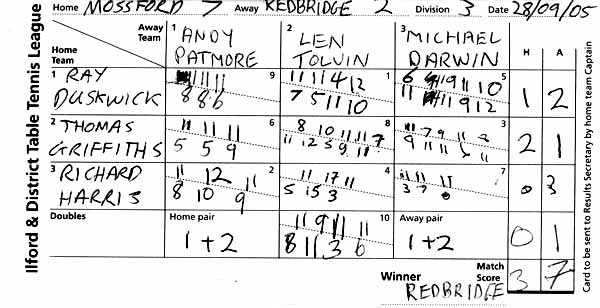 Home MOSSFORD 7 Away REDBRIDGE 2 Division 3 Date 28/09/05
Ilford & District Table Tennis League
Away Team
Home Team
1 ANDY PATMORE
2 LEN TOLVIN
3 MICHAEL DARWIN
H A
1 RAY DUSKWICK
9
11 11 11
8 8 6
1
11 11 4 12
7 5 11 10
5
11 10
11 9 12
1 2
2 THOMAS GRIFFITHS
6
11 11 11
5 5 9
8
8 10 11 11 7
11 12 5 9 11
3
11 7 9 11 8
9 11 11 11
2 1
3 RICHARD HARRIS
2
11 12 11
8 10 9
4
11 17 11
5 15 3
7
11 11 11
3 7
0 3
Doubles
Home pair
1 + 2
10
11 9 11 11
8 11 3 6
Away pair
1 + 2
0 1
Winner REDBRIDGE
Match Score 3 7
Card to be sent to Results Secretary by home team Captain